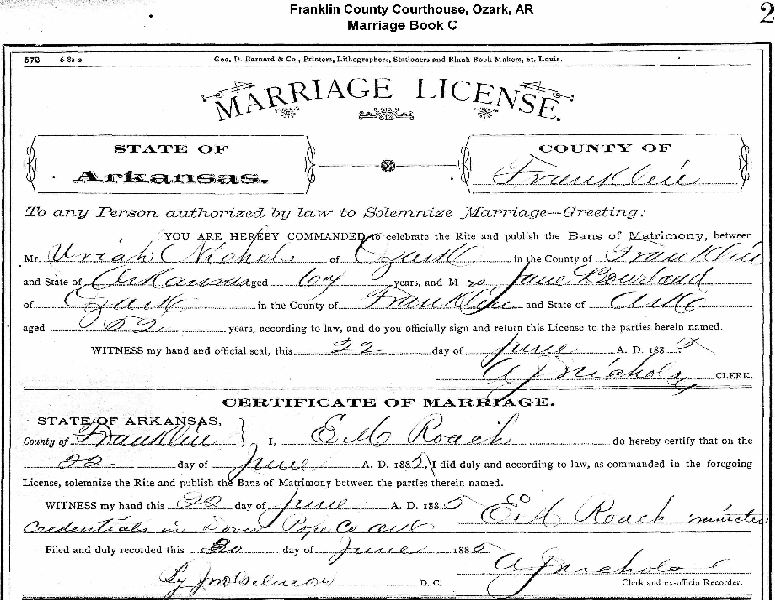 Franklin County Courthouse, Ozark, AR
Marriage Book C
2
Geo. D. Barnard & Co., Printers, Lithographers, Stationers and Blank Book Makers, St. Louis.
MARRIAGE LICENSE.
STATE OF Arkansas. COUNTY OF Franklin
To any Person authorized by law to Solemnize Marriage—Greeting:
YOU ARE HEREBY COMMANDED to celebrate the Rite and publish the Bans of Matrimony, between
Mr. Uriah Nichols of Ozark in the County of Franklin
and State of Arkansas aged years, and M rs Jane Gourland
of Ozark in the County of Franklin and State of Ark
aged 52 years, according to law, and do you officially sign and return this License to the parties herein named.
WITNESS my hand and official seal, this 22 day of June A. D. 1885
A J Nichols CLERK.
CERTIFICATE OF MARRIAGE.
STATE OF ARKANSAS,
County of Franklin } I, E M Roach do hereby certify that on the
22 day of June A. D. 1885, I did duly and according to law, as commanded in the foregoing
License, solemnize the Rite and publish the Bans of Matrimony between the parties therein named.
WITNESS my hand this 22 day of June A. D. 1885 E M Roach minister
Credentials in Dover Pope Co Ark
Filed and duly recorded this 30 day of June 1885 A J Nichols
By D. C. Clerk and ex-officio Recorder.